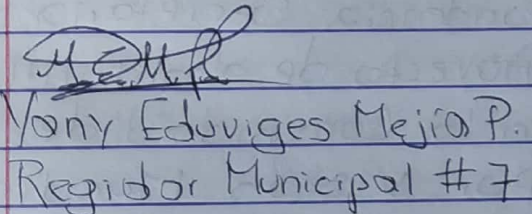 Yony Eduviges Mejía P.
Regidor Municipal # 7